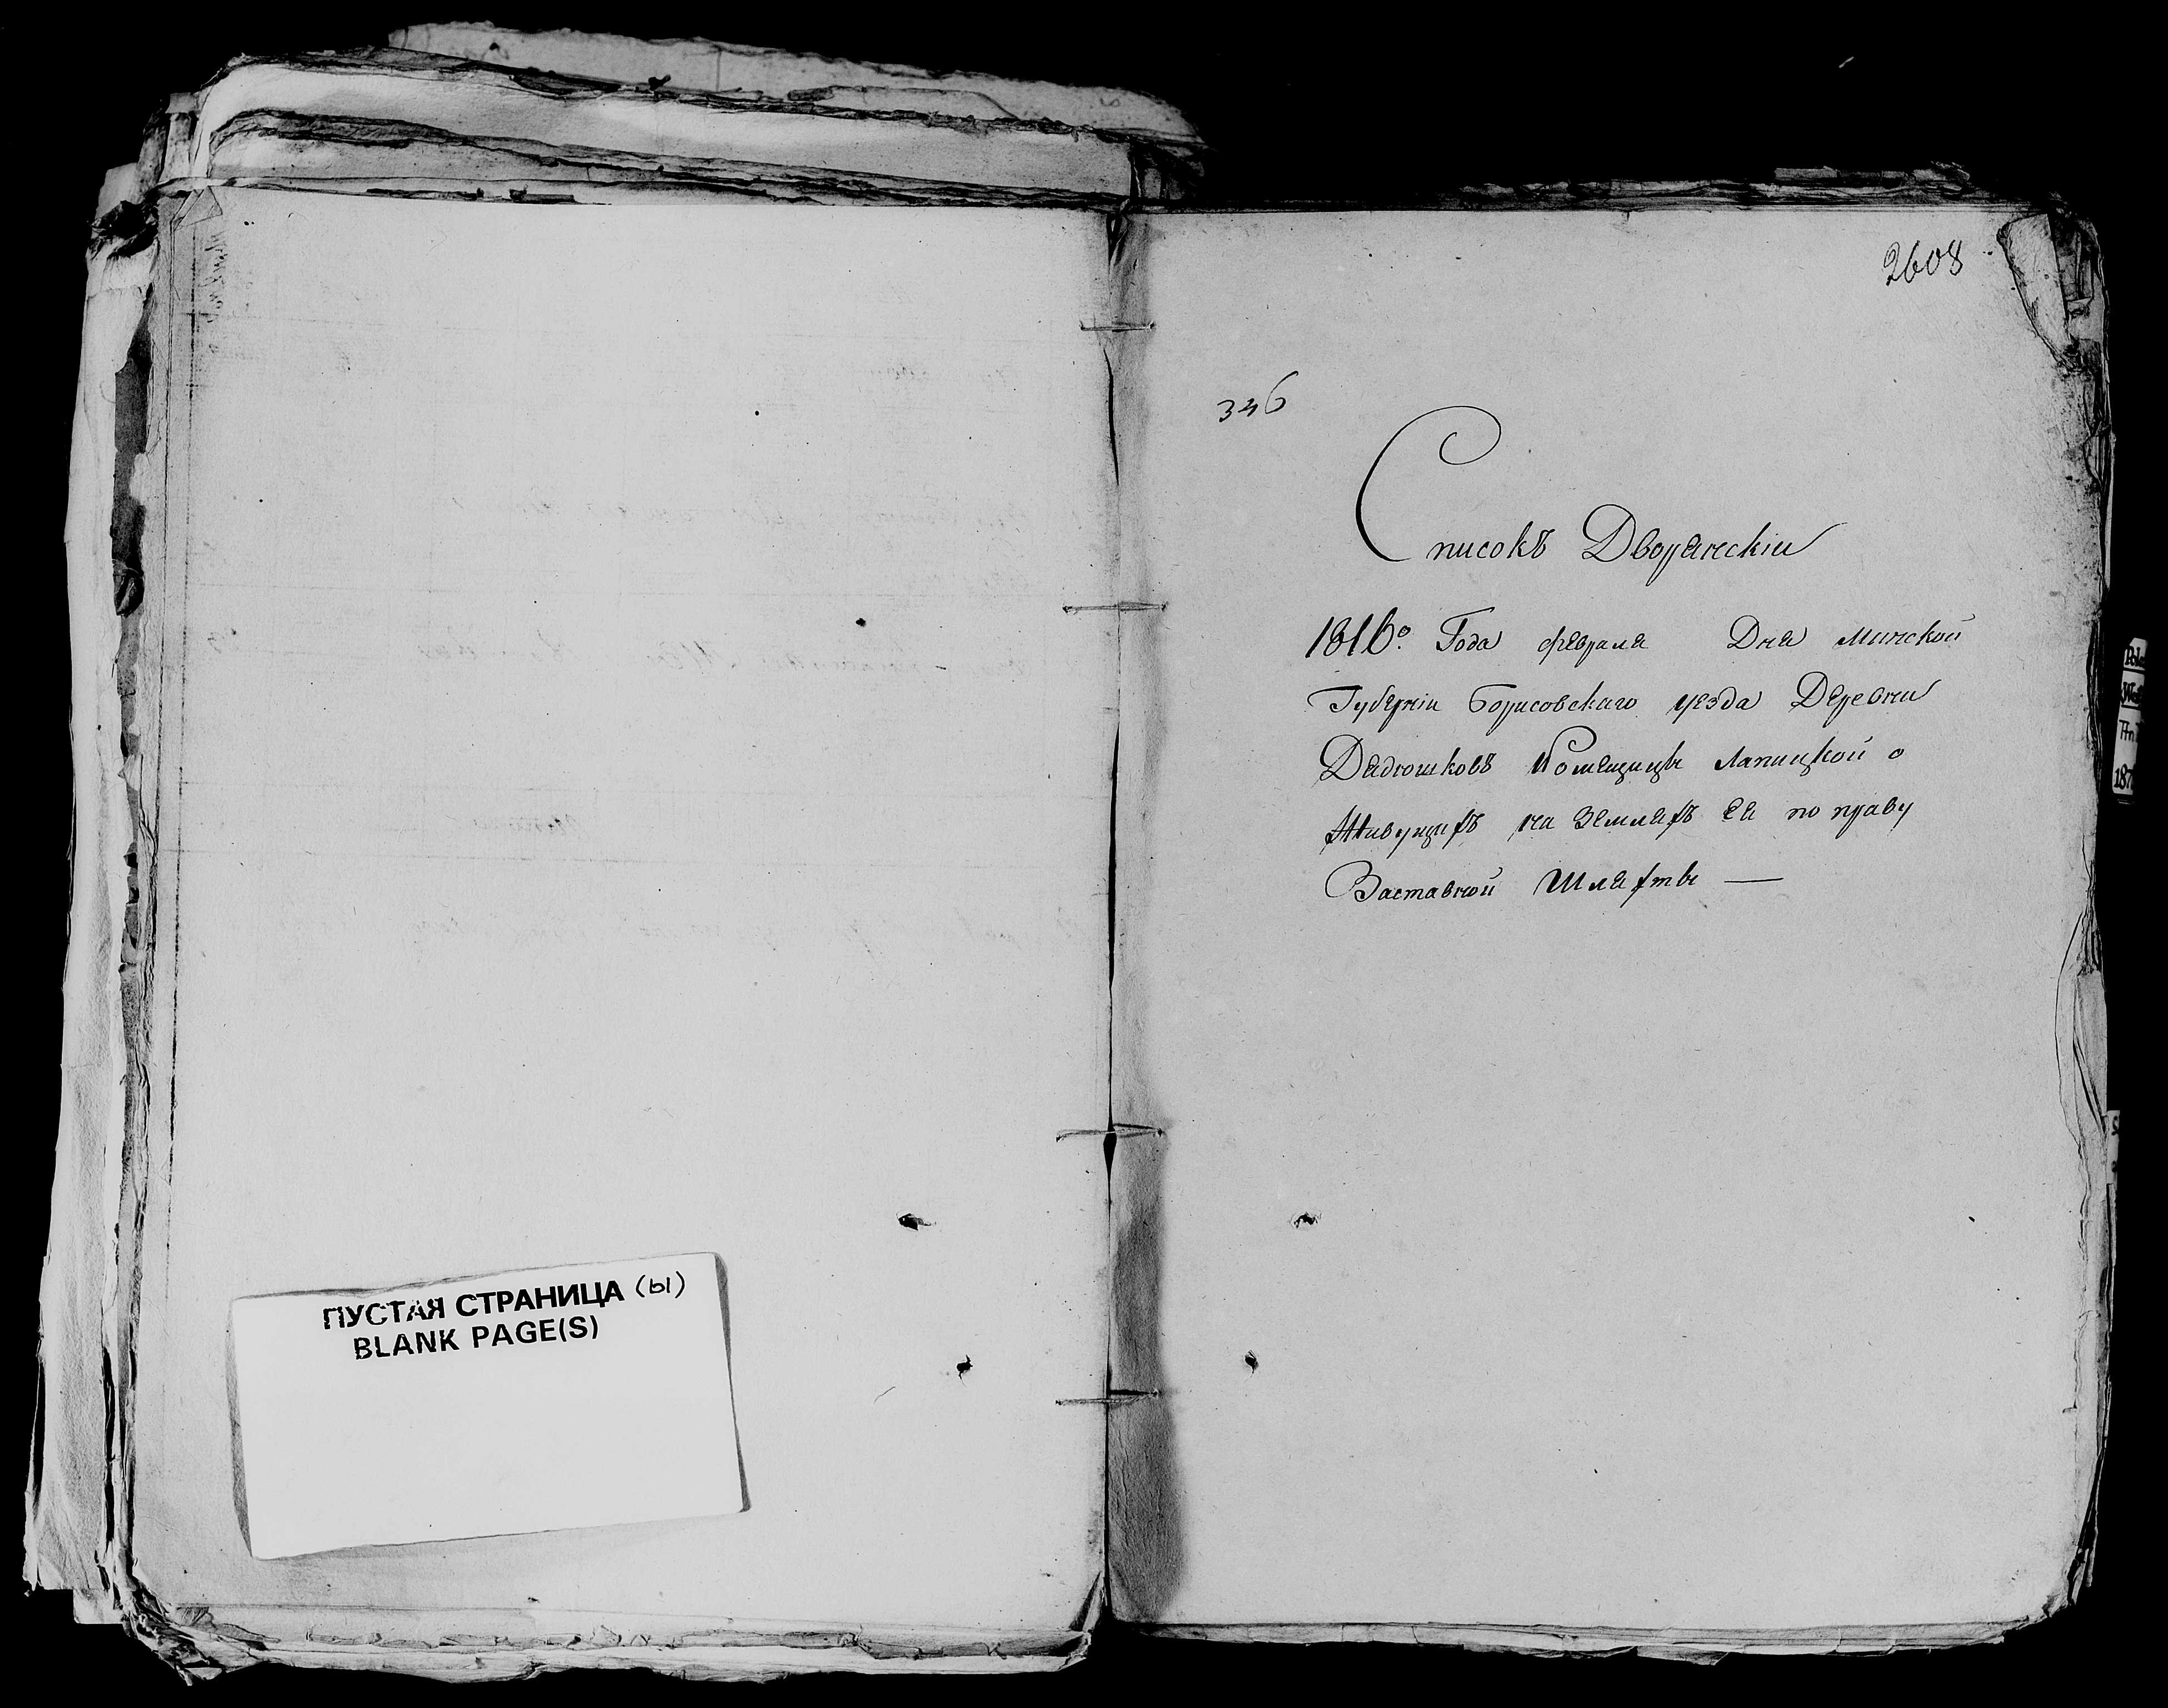 ПУСТАЯ СТРАНИЦА (ы)
BLANK PAGE(S)
2608
346
Списокъ Дворянскіи
1816º. Года февраля Дня Минской
Губерніи Борисовскаго уезда Деревни
Дядюшковъ Помещицы Лапицкой о
Живущихъ на Земляхъ ея по праву
Заставной Шляхты —